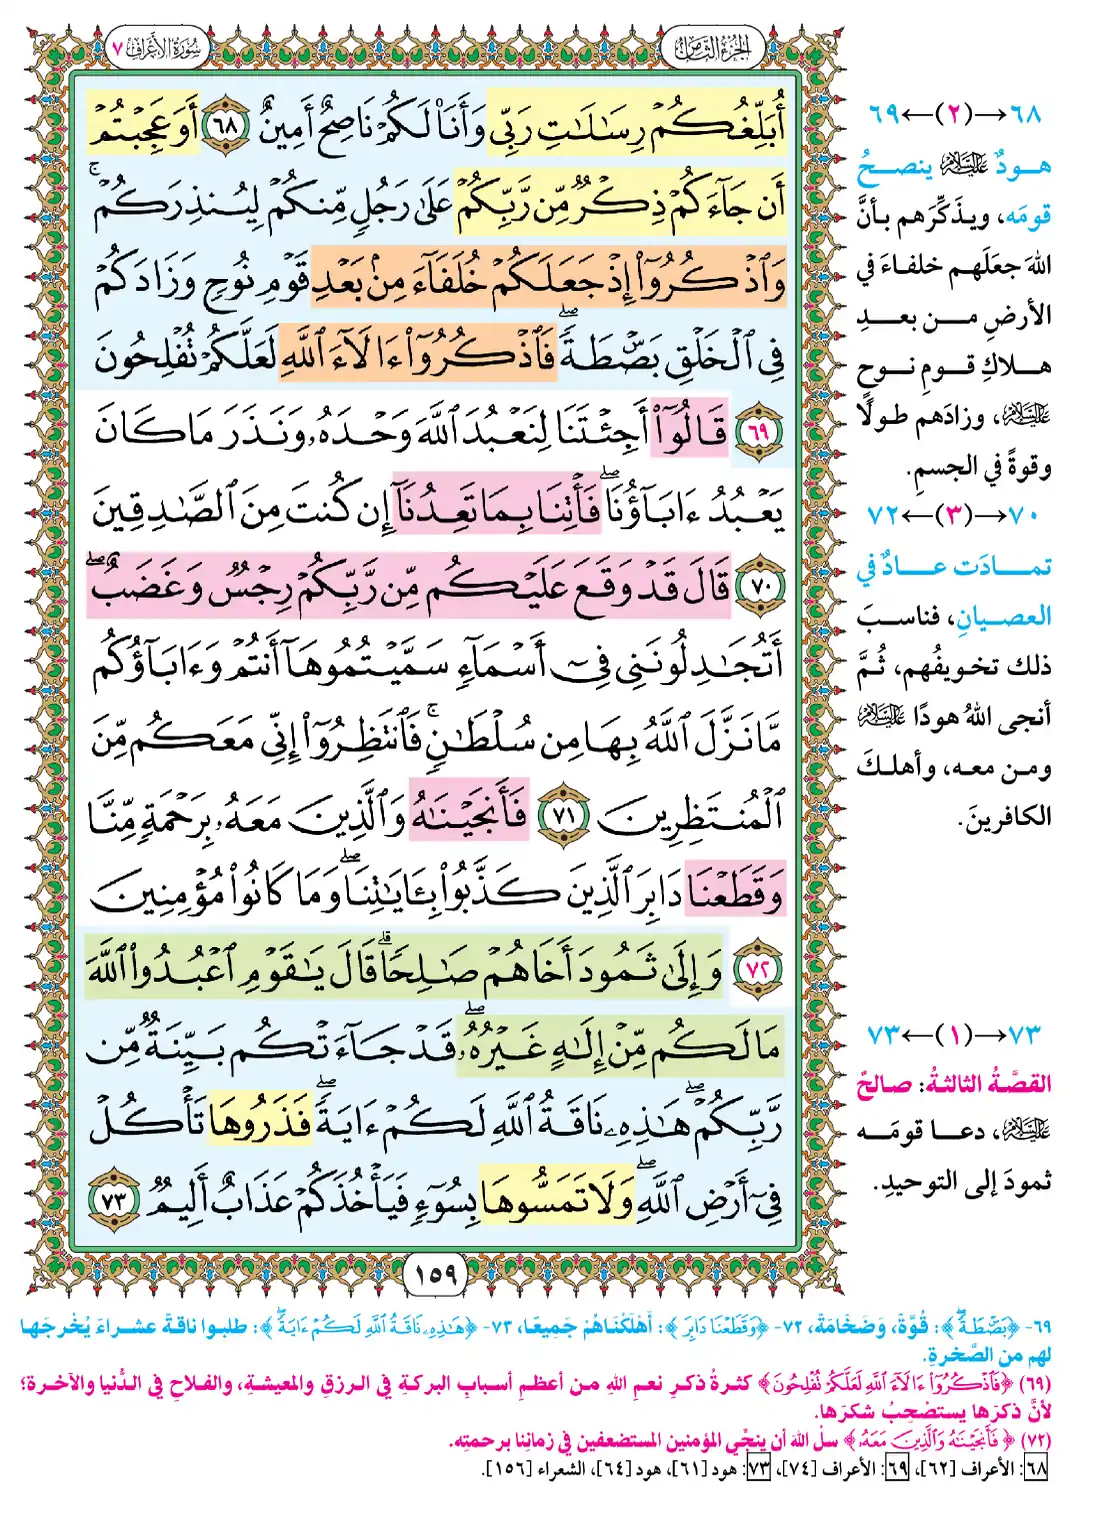 الجزء الثامن
سورة الأعراف ٧
أُبَلِّغُكُمْ رِسَٰلَٰتِ رَبِّى وَأَنَا۠ لَكُمْ نَاصِحٌ أَمِينٌ ٦٨ أَوَعَجِبْتُمْ
أَن جَآءَكُمْ ذِكْرٌ مِّن رَّبِّكُمْ عَلَىٰ رَجُلٍ مِّنكُمْ لِيُنذِرَكُمْ ۚ
وَٱذْكُرُوٓا۟ إِذْ جَعَلَكُمْ خُلَفَآءَ مِنۢ بَعْدِ قَوْمِ نُوحٍ وَزَادَكُمْ
فِى ٱلْخَلْقِ بَصْۜطَةً ۖ فَٱذْكُرُوٓا۟ ءَالَآءَ ٱللَّهِ لَعَلَّكُمْ تُفْلِحُونَ
٦٩ قَالُوٓا۟ أَجِئْتَنَا لِنَعْبُدَ ٱللَّهَ وَحْدَهُۥ وَنَذَرَ مَا كَانَ
يَعْبُدُ ءَابَآؤُنَا ۖ فَأْتِنَا بِمَا تَعِدُنَآ إِن كُنتَ مِنَ ٱلصَّٰدِقِينَ
٧٠ قَالَ قَدْ وَقَعَ عَلَيْكُم مِّن رَّبِّكُمْ رِجْسٌ وَغَضَبٌ ۖ
أَتُجَٰدِلُونَنِى فِىٓ أَسْمَآءٍ سَمَّيْتُمُوهَآ أَنتُمْ وَءَابَآؤُكُم
مَّا نَزَّلَ ٱللَّهُ بِهَا مِن سُلْطَٰنٍ ۚ فَٱنتَظِرُوٓا۟ إِنِّى مَعَكُم مِّنَ
ٱلْمُنتَظِرِينَ ٧١ فَأَنجَيْنَٰهُ وَٱلَّذِينَ مَعَهُۥ بِرَحْمَةٍ مِّنَّا
وَقَطَعْنَا دَابِرَ ٱلَّذِينَ كَذَّبُوا۟ بِـَٔايَٰتِنَا ۖ وَمَا كَانُوا۟ مُؤْمِنِينَ
٧٢ وَإِلَىٰ ثَمُودَ أَخَاهُمْ صَٰلِحًا ۗ قَالَ يَٰقَوْمِ ٱعْبُدُوا۟ ٱللَّهَ
مَا لَكُم مِّنْ إِلَٰهٍ غَيْرُهُۥ ۖ قَدْ جَآءَتْكُم بَيِّنَةٌ مِّن
رَّبِّكُمْ ۖ هَٰذِهِۦ نَاقَةُ ٱللَّهِ لَكُمْ ءَايَةً ۖ فَذَرُوهَا تَأْكُلْ
فِىٓ أَرْضِ ٱللَّهِ ۖ وَلَا تَمَسُّوهَا بِسُوٓءٍ فَيَأْخُذَكُمْ عَذَابٌ أَلِيمٌ ٧٣
١٥٩
٦٨→(٢)←٦٩
هودٌ عليه السلام ينصحُ
قومَه، ويذكِّرَهم بأنَّ
اللهَ جعلَهم خلفاءَ في
الأرضِ من بعدِ
هلاكِ قومِ نوحٍ
عليه السلام، وزادَهم طولًا
وقوةً في الجسمِ.
٧٠→(٣)←٧٢
تمادَت عادٌ في
العصيانِ، فناسبَ
ذلك تخويفُهم، ثُمَّ
أنجى اللهُ هودًا عليه السلام
ومن معه، وأهلكَ
الكافرينَ.
٧٣→(١)←٧٣
القصَّةُ الثالثةُ: صالحٌ
عليه السلام، دعا قومَه
ثمودَ إلى التوحيدِ.
٦٩- ﴿بَصْۜطَةً ۖ﴾: قُوَّةً، وَضَخَامَةً، ٧٢- ﴿وَقَطَعْنَا دَابِرَ﴾: أَهْلَكْنَاهُمْ جَمِيعًا، ٧٣- ﴿هَٰذِهِۦ نَاقَةُ ٱللَّهِ لَكُمْ ءَايَةً ۖ﴾: طلبوا ناقةً عشراءَ يُخْرجَها
لهم من الصَّخرةِ.
(٦٩) ﴿فَٱذْكُرُوٓا۟ ءَالَآءَ ٱللَّهِ لَعَلَّكُمْ تُفْلِحُونَ﴾ كثرةُ ذكرِ نعمِ اللهِ من أعظمِ أسبابِ البركةِ في الرزقِ والمعيشةِ، والفلاحِ في الدُّنيا والآخرة؛
لأنَّ ذكرَها يستصْحِبُ شكرَها.
(٧٢) ﴿فَأَنجَيْنَٰهُ وَٱلَّذِينَ مَعَهُۥ﴾ سلْ اللهَ أن ينجِّي المؤمنين المستضعفين في زمانِنا برحمتِه.
٦٨: الأعراف [٦٢]، ٦٩: الأعراف [٧٤]، ٧٣: هود [٦١]، هود [٦٤]، الشعراء [١٥٦].